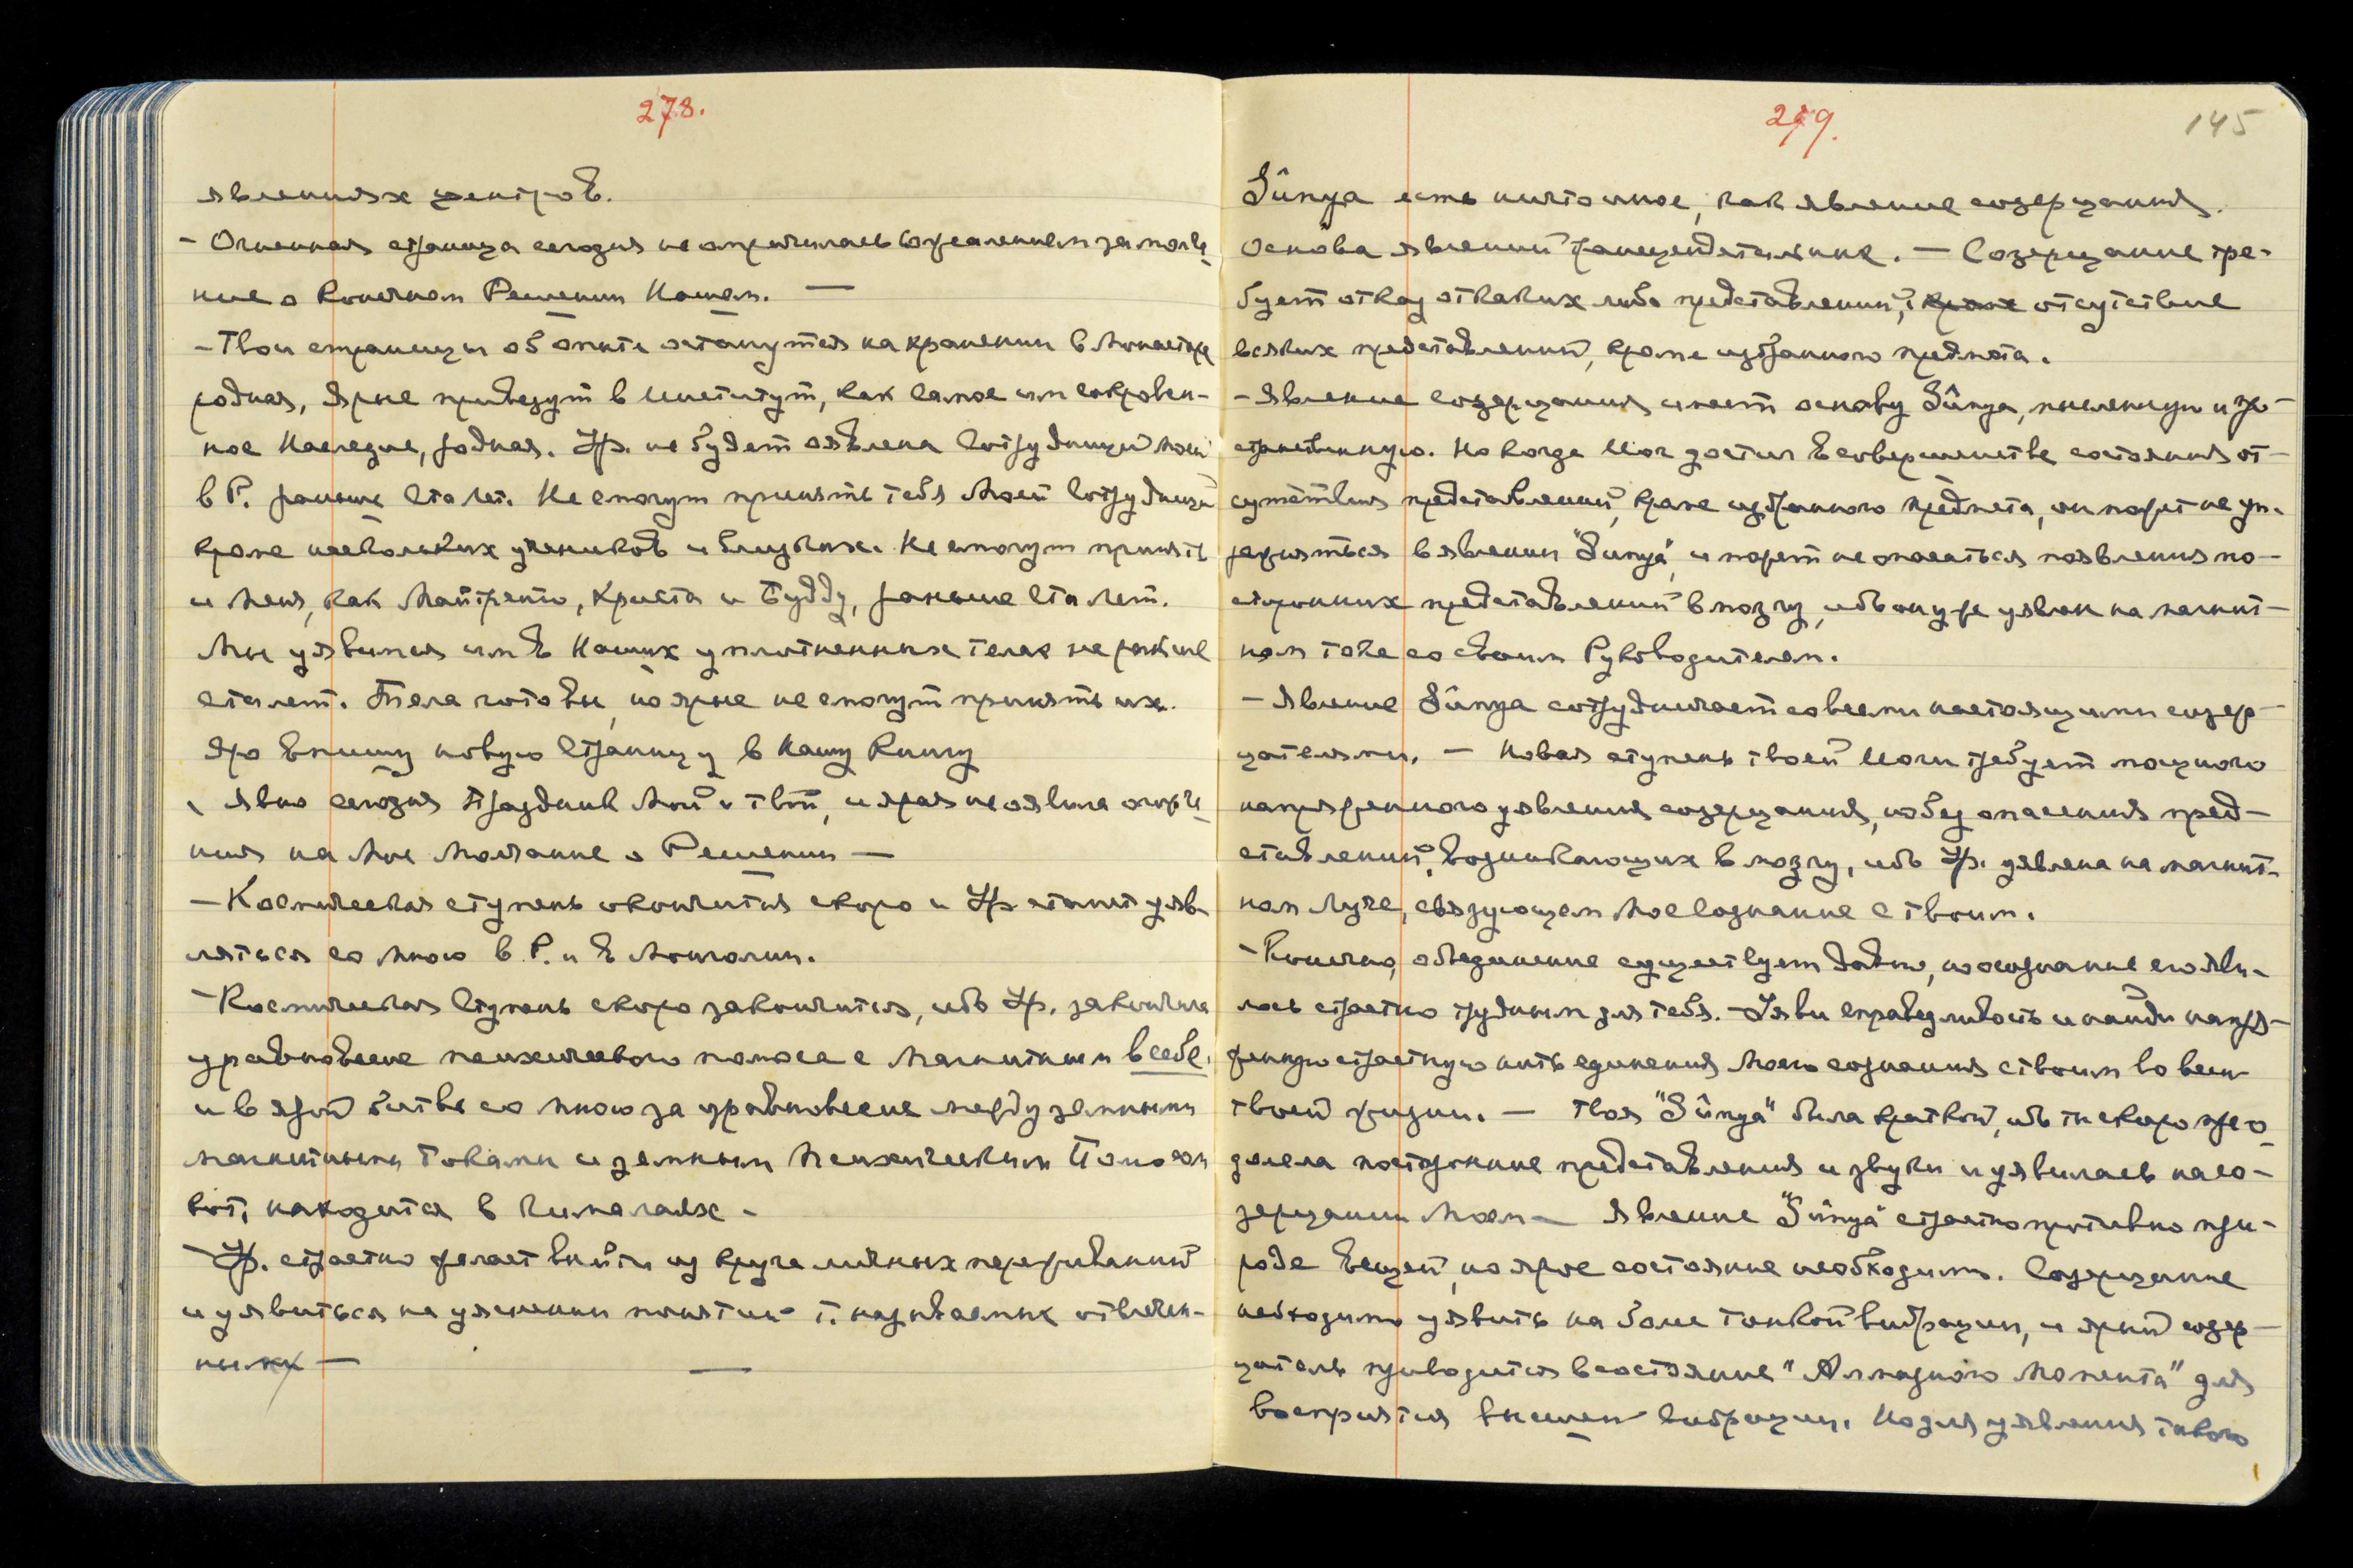 278.
явлениях центров.
- Огненная страница сегодня не омрачилась сожалением за молча-
ние о Конечном Решении Нашем. —
- Твои страницы об опыте останутся на хранении в Монастыре
родная, Ярые привезут в Институт, как самое им сокровен-
ное Наследие, родная. Ур. не будет оявлена Сотрудницей Моей
в Р. раньше ста лет. Не смогут принять тебя Моей Сотрудницей
кроме нескольких учеников и близких. Не смогут принять
и Меня, как Майтрейю, Христа и Будду, раньше ста лет.
Мы уявимся им в Наших уплотненных телах не раньше
ста лет. Тела готовы, но ярые не смогут принять их.
Яро впишу новую Страницу в Нашу Книгу
Явно сегодня Праздник Мой и твой, и ярая не оявила огорче-
ния на Мое Молчание о Решении —
- Космическая ступень окончится скоро и Ур. станет уяв-
ляться со Мною в Р. и в Монголии.
- Космическая Ступень скоро закончится, ибо Ур. закончила
уравновесие психического полюса с Магнитным в себе,
и в ярой битве со Мною за уравновесие между земными
магнитными Токами и земным Психическим Полюсом
кот. находится в Гималаях -
- Ур. страстно желает выйти из круга личных переживаний
и уявиться на уяснении понятий т. называемых отвлечен-
ных —
279.
145
Sûnya есть ничто иное, как явление созерцания.
Основа явлений трансцендентальных. — Созерцание тре-
бует отказ от каких либо представлений, отсутствие
всяких представлений, кроме избранного предмета.
- Явление созерцания имеет основу Sûnya, мысленную и про-
странственную. Но когда Йог достиг в совершенстве состояния от-
сутствия представлений, кроме избранного предмета, он может не уп-
ражняться в явлении "Sunya", и может не опасаться появления по-
сторонних представлений в мозгу, ибо он уже уявлен на магнит-
ном токе со своим Руководителем.
- Явление Sûnya сотрудничает со всеми настоящими созер-
цателями. — Новая ступень твоей Йоги требует мощного
напряженного уявления созерцания, но без опасения пред-
ставлений, возникающих в мозгу, ибо Ур. уявлена на магнит-
ном Луче, связующем Мое Сознание с твоим.
- Конечно, объединение существует давно, но осознание его яви-
лось страстно трудным для тебя. - Уяви справедливость и найди напря-
женную страстную нить единения Моего сознания с твоим во всей
твоей жизни. — Твоя "Sûnya" была краткой, ибо ты скоро прео-
долела посторонние представления и звуки и уявилась на со-
зерцании Моем — Явление "Sûnya" страстно противно при-
роде вещей, но ярое состояние необходимо. Созерцание
необходимо уявить на более тонкой вибрации, и ярый созер-
цатель приводится в состояние "Алмазного Момента" для
восприятия высшей вибрации. Но для уявления такого